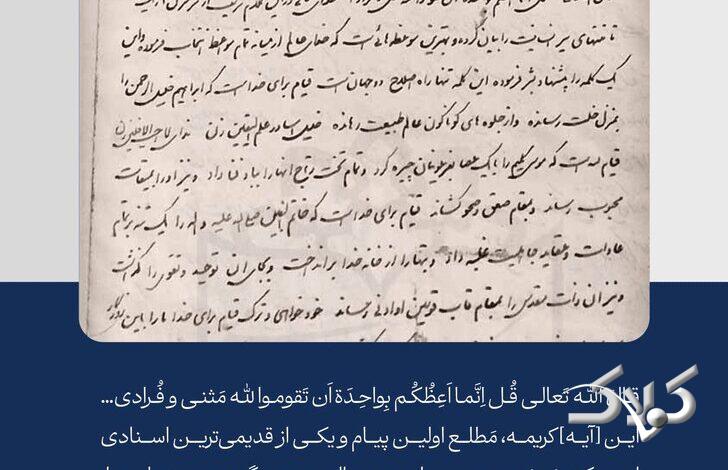 تا منتهای سیر انسانیت را بیان کرده و بهترین موعظه‌هائی است که خدای عالم از میانه تمام مواعظ انتخاب فرموده و این
یک کلمه را پیشنهاد بشر فرموده این کلمه تنها راه اصلاح دو جهان است قیام برای خدا است که ابراهیم خلیل الرحمن را
بمنزل خلت رسانده و از جلوه‌های گوناگون عالم طبیعت رهانده خلیل آسا در علم الیقین زن ندای لا احب الافلین زن
قیام لله است که موسی کلیم را با یک عصا بفرعونیان چیره کرد و تمام تخت و تاج آنها را بباد فنا داد و نیز او را بمیقات
محبوب رساند و بمقام صعق و صحو کشاند قیام برای خدا است که خاتم النبیین صلی الله علیه و اله را یک تنه بر تمام
عادات و عقاید جاهلیت غلبه داد و بتها را از خانه خدا برانداخت و بجای آن توحید و تقوی را گذاشت
و نیز آن ذات مقدس را بمقام قاب قوسین او ادنی رساند خودخواهی و ترک قیام برای خدا ما را باین روزگار
قال اللّه تَعالی قُل اِنَّما اَعِظُکُم بِواحِدَة اَن تَقوموا للّه مَثنی و فُرادی...
این [آیه] کریمه، مَطلع اولین پیام و یکی از قدیمی‌ترین اسنادی
کلاک